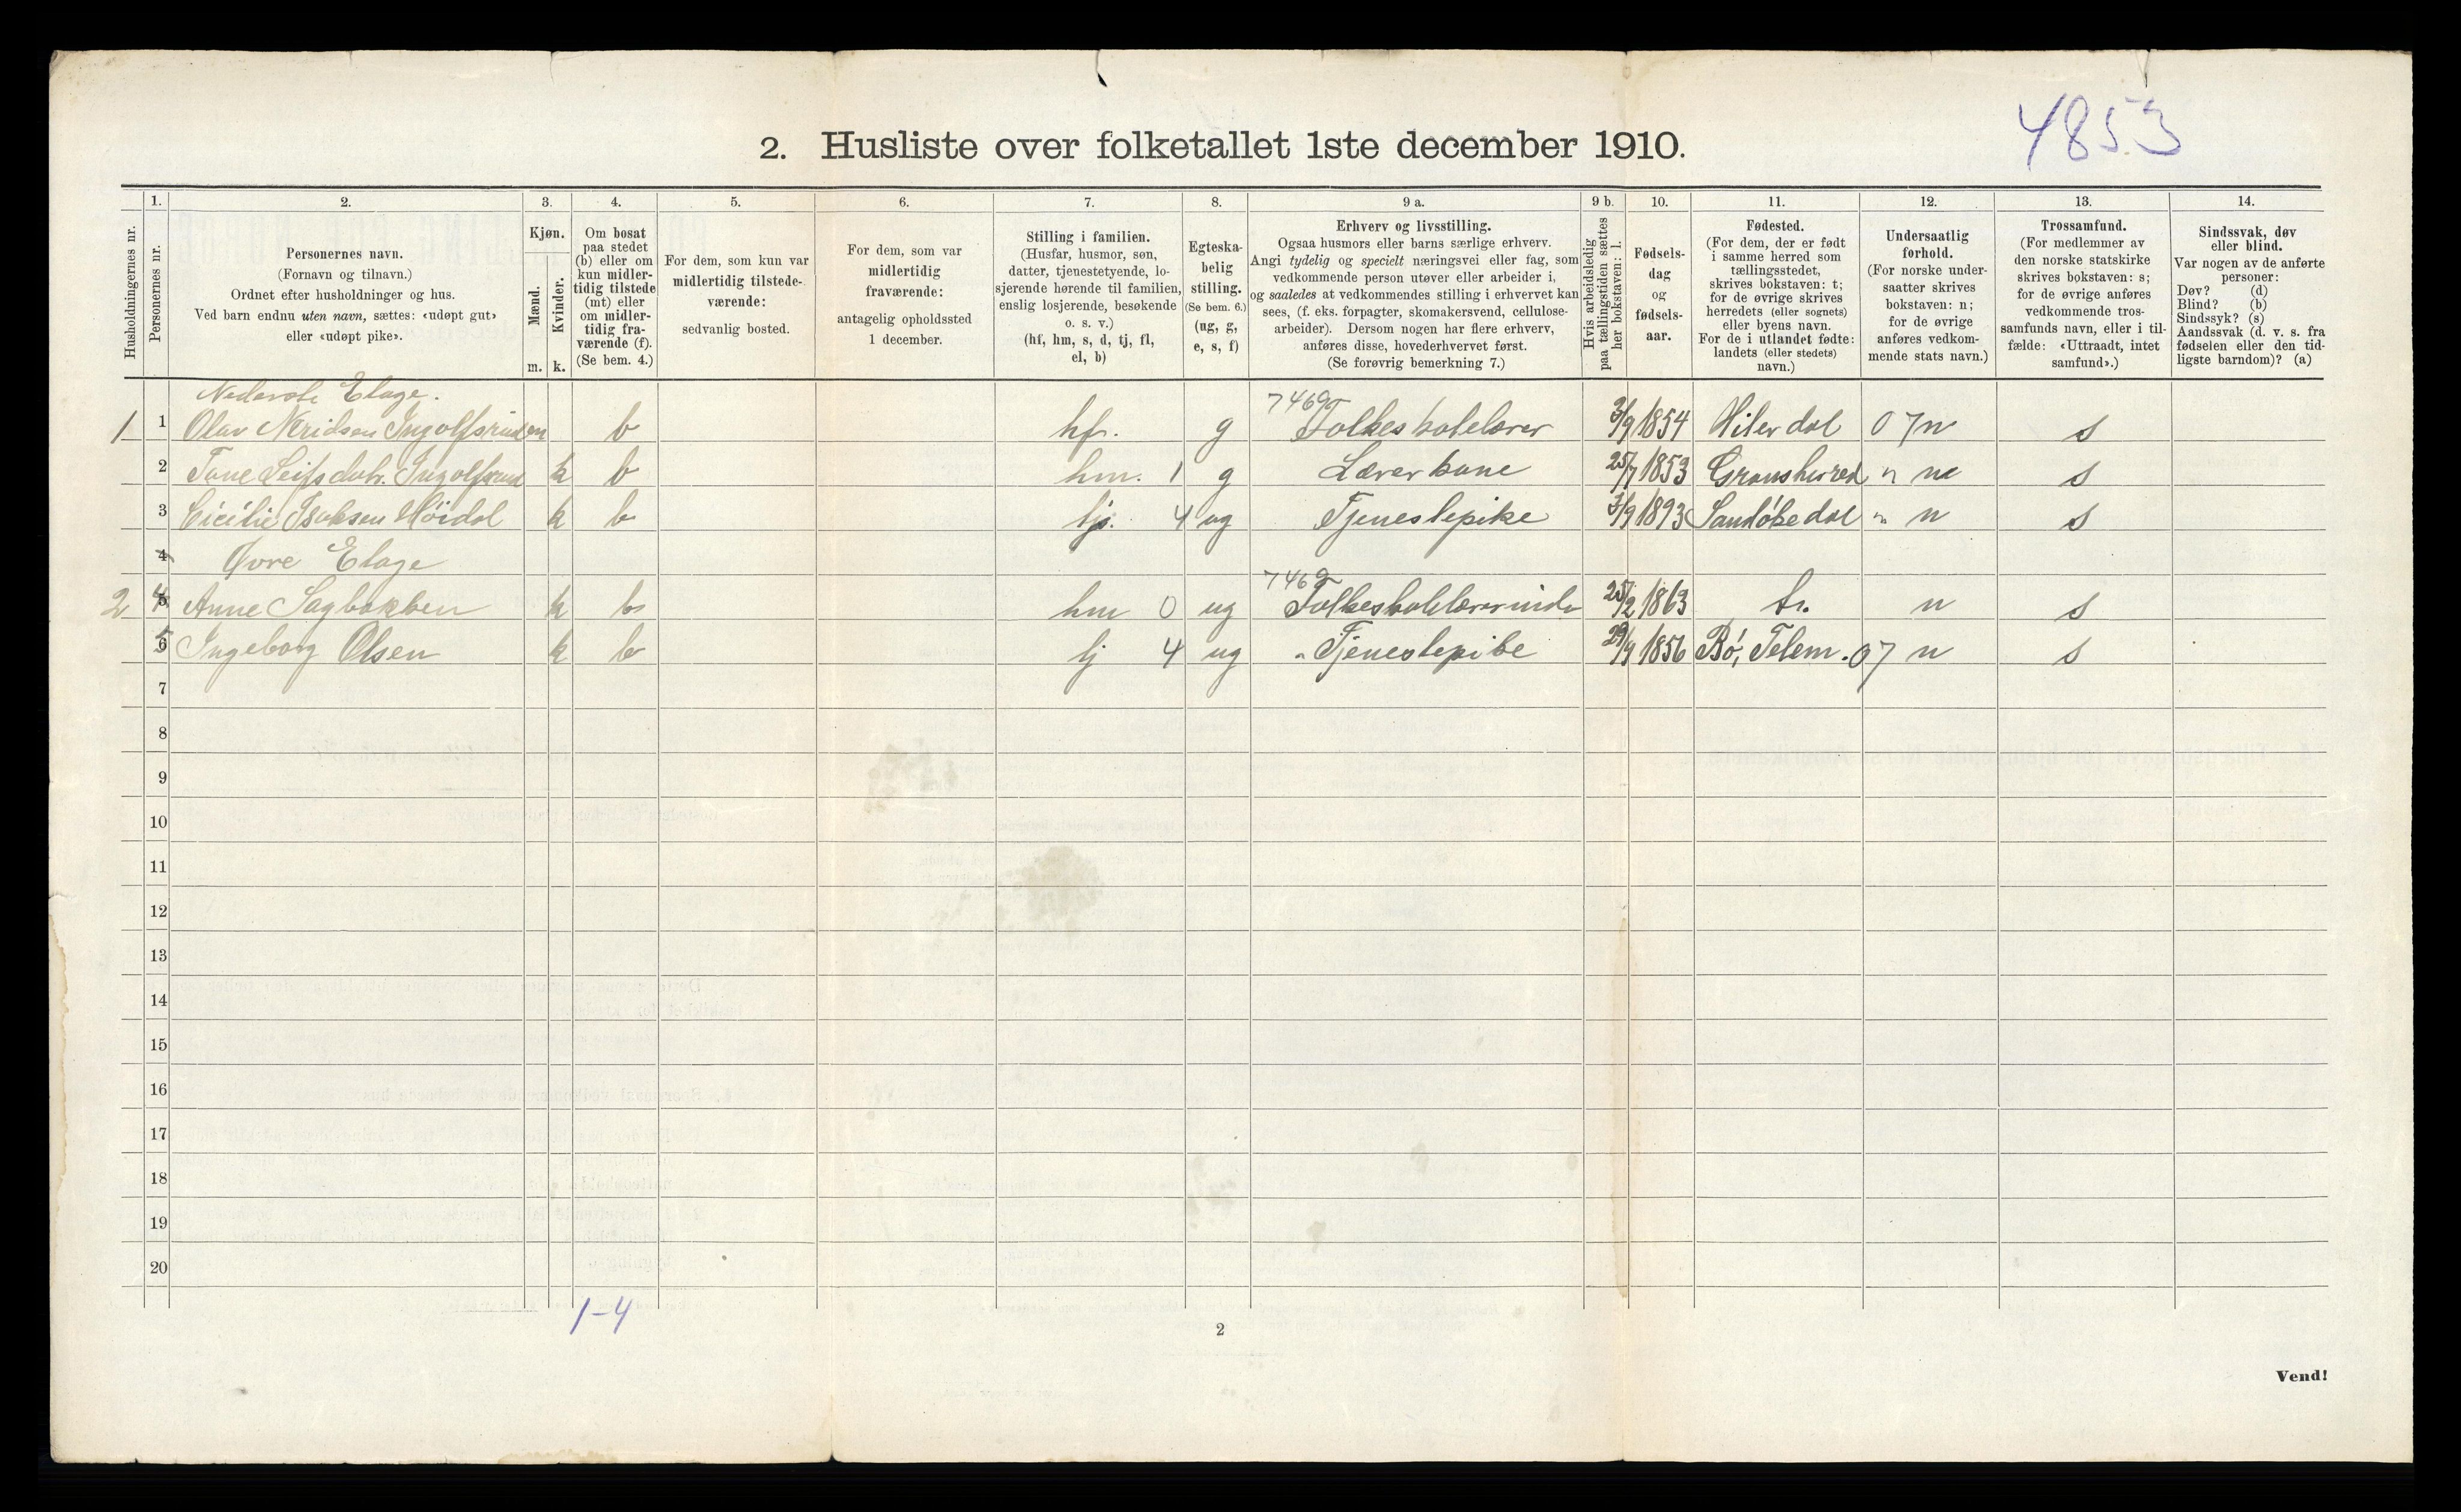 4853
2. Husliste over folketallet 1ste december 1910.
Husholdningernes nr.
1.
Personernes nr.
2.
Personernes navn.
(Fornavn og tilnavn.)
Ordnet efter husholdninger og hus.
Ved barn endnu uten navn, sættes: «udøpt gut»
eller «udøpt pike».
3.
Kjøn.
Mænd. Kvinder.
m. k.
4.
Om bosat
paa stedet
(b) eller om
kun midler-
tidig tilstede
(mt) eller
om midler-
tidig fra-
værende (f).
(Se bem. 4.)
5.
For dem, som kun var
midlertidig tilstede-
værende:
sedvanlig bosted.
6.
For dem, som var
midlertidig
fraværende:
antagelig opholdssted
1 december.
7.
Stilling i familien.
(Husfar, husmor, søn,
datter, tjenestetyende, lo-
sjerende hørende til familien,
enslig losjerende, besøkende
o. s. v.)
(hf, hm, s, d, tj, fl,
el, b)
8.
Egteska-
belig
stilling.
(Se bem. 6.)
(ug, g,
e, s, f)
9 a.
Erhverv og livsstilling.
Ogsaa husmors eller barns særlige erhverv.
Angi tydelig og specielt næringsvei eller fag, som
vedkommende person utøver eller arbeider i,
og saaledes at vedkommendes stilling i erhvervet kan
sees, (f. eks. forpagter, skomakersvend, cellulose-
arbeider). Dersom nogen har flere erhverv,
anføres disse, hovederhvervet først.
(Se forøvrig bemerkning 7.)
9 b.
Hvis arbeidsledig
paa tællingstiden sættes
her bokstaven: l.
10.
Fødsels-
dag
og
fødsels-
aar.
11.
Fødested.
(For dem, der er født
i samme herred som
tællingsstedet,
skrives bokstaven: t;
for de øvrige skrives
herredets (eller sognets)
eller byens navn.
For de i utlandet fødte:
landets (eller stedets)
navn.)
12.
Undersaatlig
forhold.
(For norske under-
saatter skrives
bokstaven: n;
for de øvrige
anføres vedkom-
mende stats navn.)
13.
Trossamfund.
(For medlemmer av
den norske statskirke
skrives bokstaven: s;
for de øvrige anføres
vedkommende tros-
samfunds navn, eller i til-
fælde: «Uttraadt, intet
samfund».)
14.
Sindssvak, døv
eller blind.
Var nogen av de anførte
personer:
Døv? (d)
Blind? (b)
Sindssyk? (s)
Aandssvak (d. v. s. fra
fødselen eller den tid-
ligste barndom)? (a)
Nederste Etage.
1 1 Olav Neridsen Ingolfsrud m b hf. g 7469 Folkeskolelærer 3/9 1854 Hiterdal 07 n s
2 Tone Leifsdatr. Ingolfsrud k b hm. 1 g Lærerkone 25/7 1853 Gransherred " n s
3 Cicilie Isaksen Höidal k b tj. 4 ug Tjenestepike 3/9 1893 Sandökedal " n s
4 Øvre Etage
2 4 Anne Sagbakken k b hm 0 ug 7469 Folkeskolelærerinde 25/2 1863 t. n s
5 Ingeborg Olsen k b tj 4 ug Tjenestepike 29/9 1856 Bö, Telem. 07 n s
7
8
9
10
11
12
13
14
15
16
17
18
19
20
1-4
2
Vend!